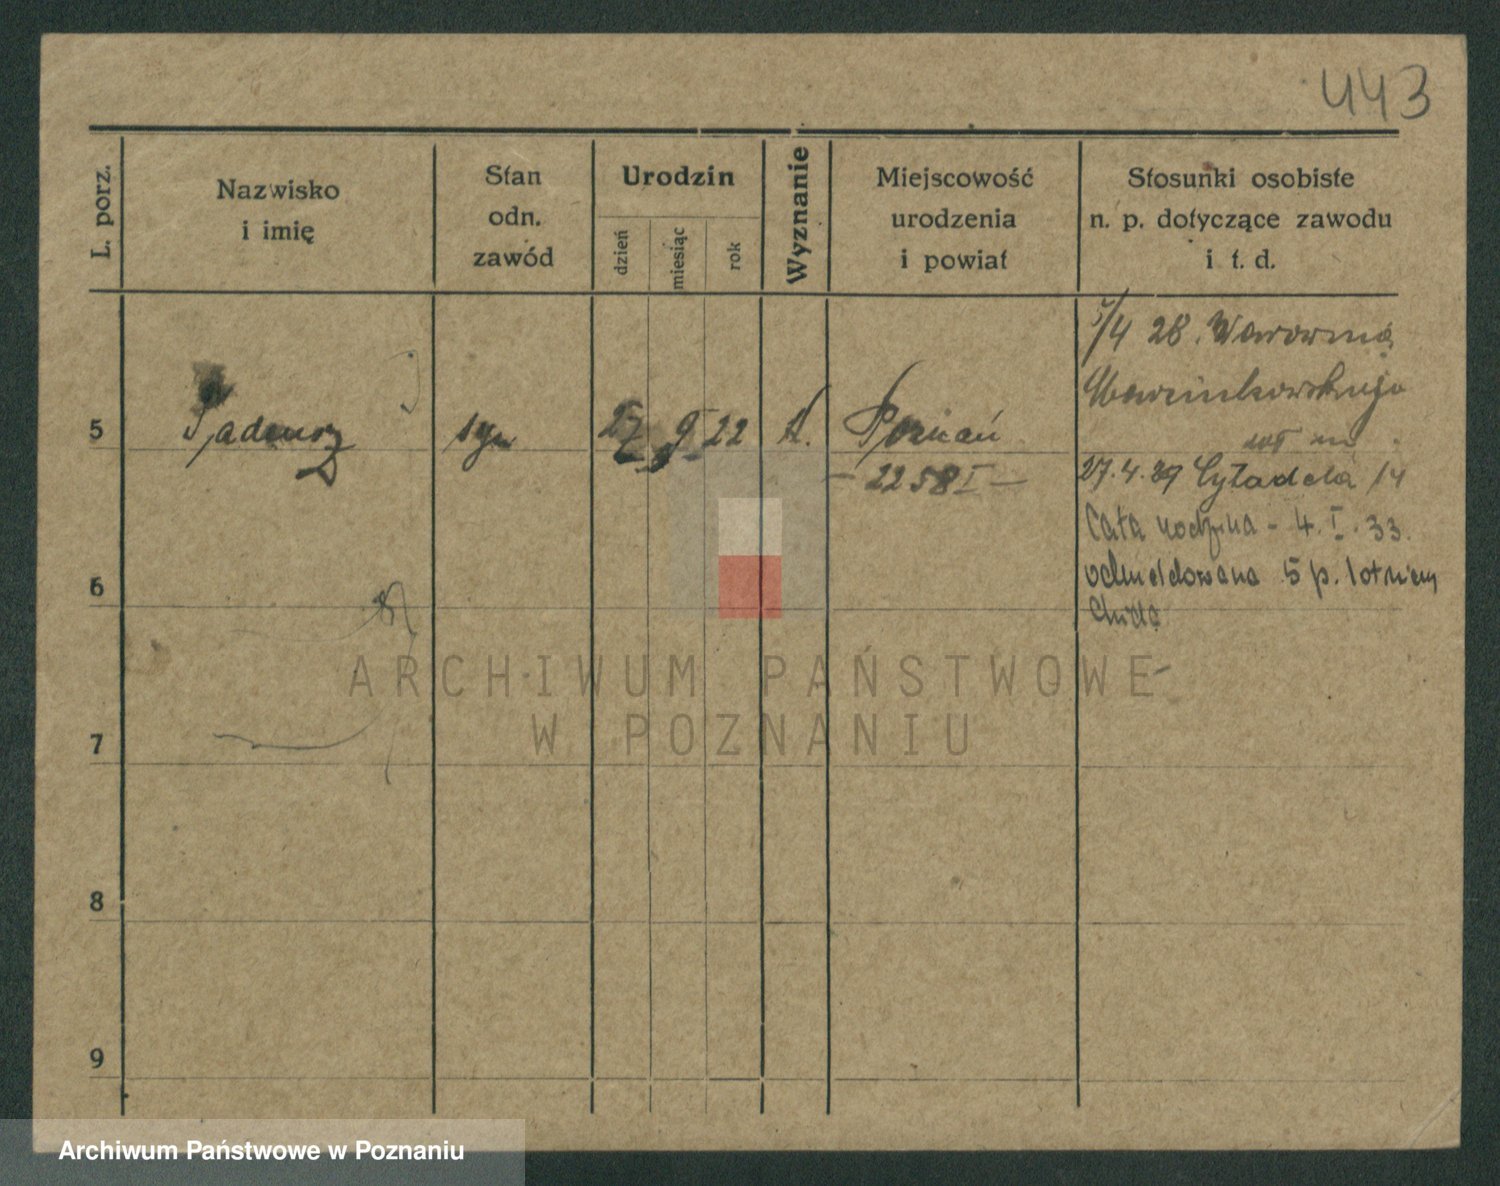 443
L. porz.
Nazwisko
i imię
Stan
odn.
zawód
Urodzin
dzień
miesiąc
rok
Wyznanie
Miejscowość
urodzenia
i powiat
Stosunki osobiste
n. p. dotyczące zawodu
i t. d.
5/4 28. Warowna
Marcinkowskiego
5
Tadeusz
syn
27
9
22
k.
Poznań
– 2258 I –
27.4.29 Cytadela 14
Cała rodzina - 4. I. 33.
odmeldowana 5 p. lotniczy
Lida
6
7
8
9
ARCHIWUM PAŃSTWOWE
W POZNANIU
Archiwum Państwowe w Poznaniu